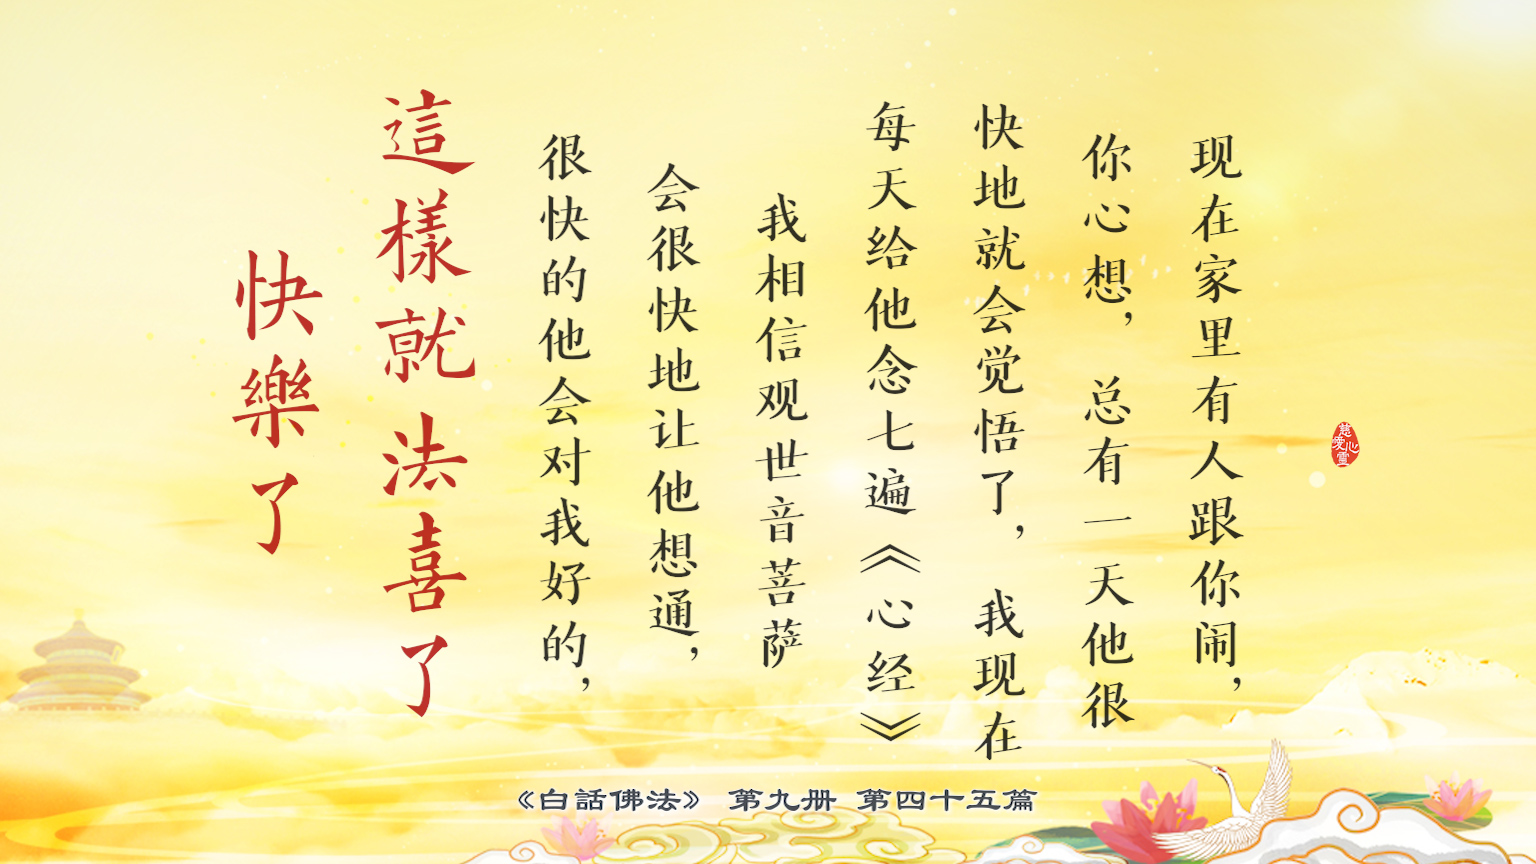 现在家里有人跟你闹，
你心想，总有一天他很
快地就会觉悟了，我现在
每天给他念七遍《心经》
我相信观世音菩萨
会很快地让他想通，
很快的他会对我好的，
這樣就法喜了
快樂了
慈愛心靈
《白話佛法》 第九册 第四十五篇